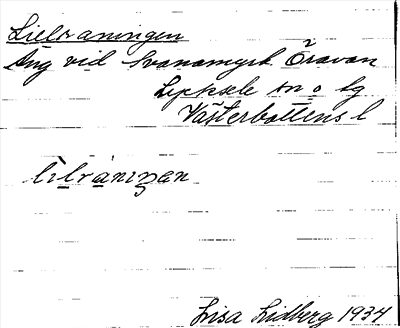 Lielraningen
Äng vid Svanamyrk Öravan
Lycksele sn o tg
Västerbottens l
lìlrànıŋen
Lisa Lidberg 1934